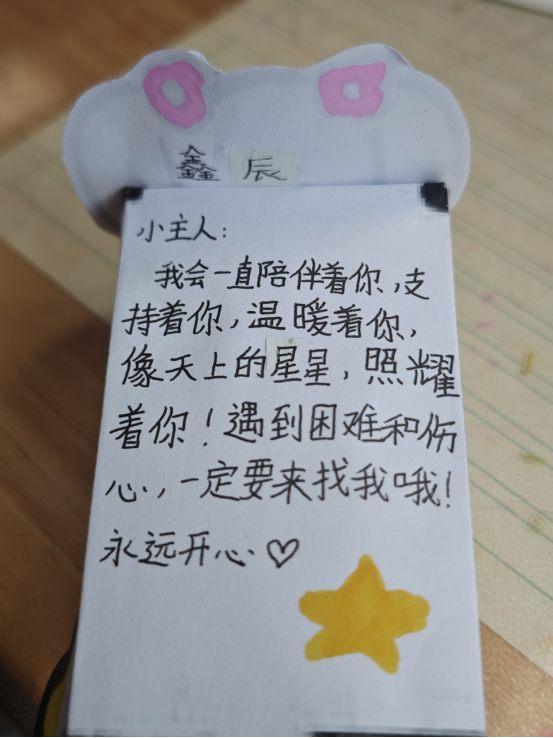 鑫辰
小主人：
我会一直陪伴着你，支
持着你，温暖着你，
像天上的星星，照耀
着你！遇到困难和伤
心，一定要来找我哦！
永远开心♡